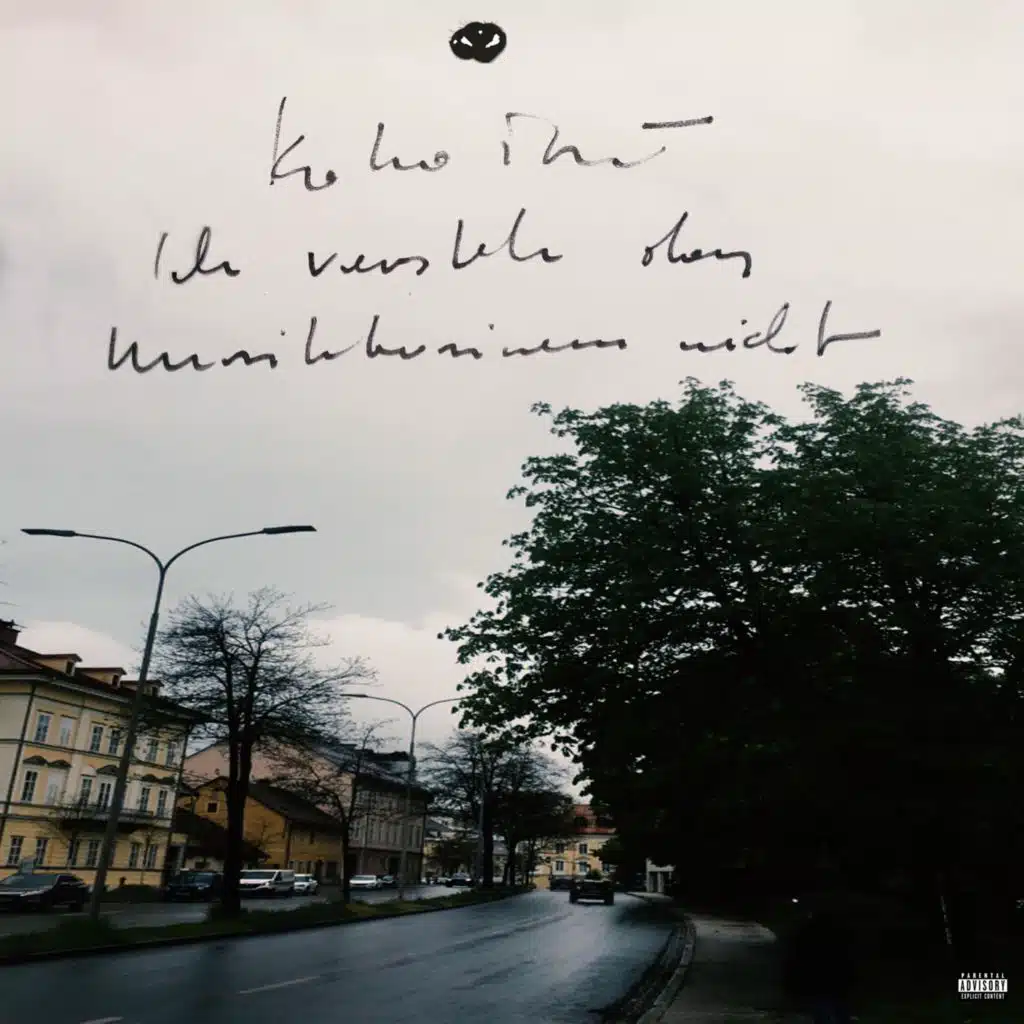 Ich verstehe das
Musikbusiness nicht
PARENTAL
ADVISORY
EXPLICIT CONTENT